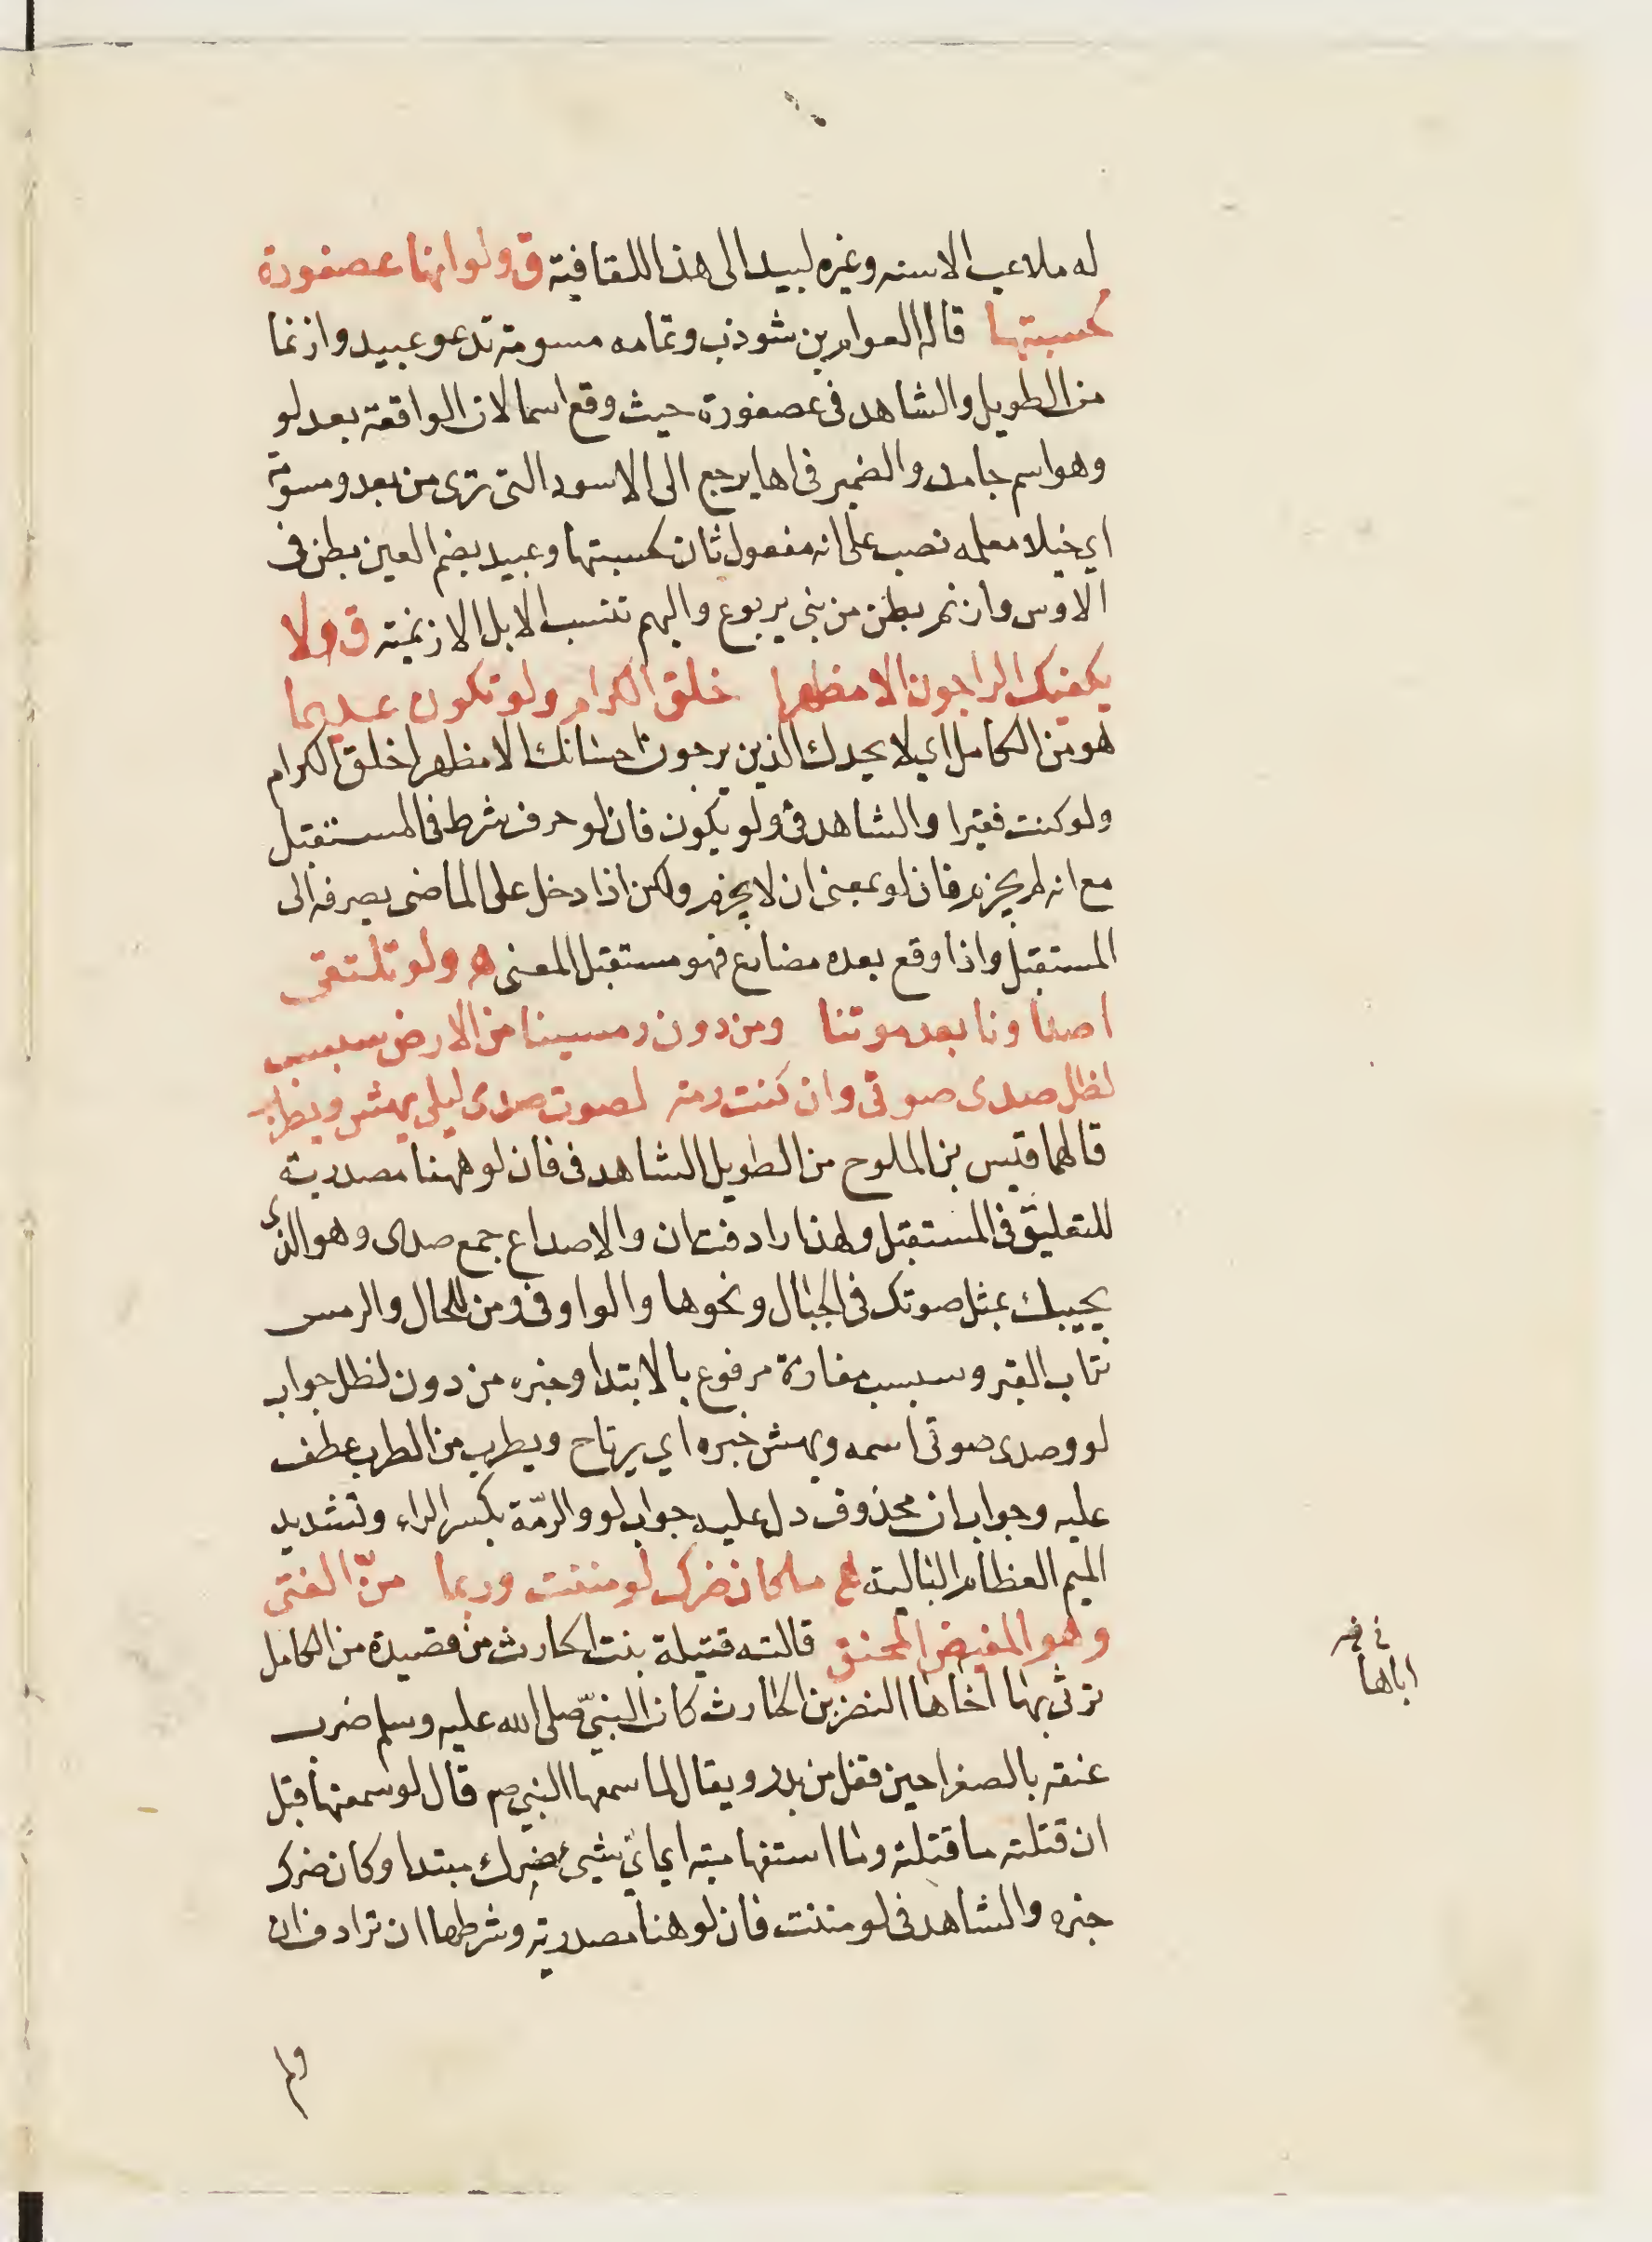 له ملاعب الاسنه وغيره لبيد الى هذا للقافية ق ولو انها عصفورة
لحسبتها قاله العوام بن شوذب وتمامه مسومة تدعو عبيد وازنما
من الطويل والشاهد في عصفورة حيث وقع اسما لان الواقعة بعد لو
وهو اسم جامد والضمير في اها يرجع الى الاسود التي ترى من بعد ومسومة
اي خيلا معلمه نصب على انه مفعول ثان لحسبتها وعبيد بضم العين بطن في
الاوس وازنم بطن من بني يربوع واليهم تنسب الابل الازنمية ق ولا
يلفيك الراجون الا مظهرا خلق الكرام ولو تكون عديما
هو من الكامل اي لا يجدك الذين يرجون احسانك الا مظهرا خلق الكرام
ولو كنت فقيرا والشاهد في ولو يكون فان لو حرف شرط في المستقبل
مع انه لم يجزم فان لو بمعنى ان لا يجزم ولكن اذا دخل على الماضي يصرفه الى
المستقبل واذا وقع بعده مضارع فهو مستقبل المعنى ه ولو تلتقى
اصداونا بعد موتنا ومن دون رمسينا من الارض سبسب
لظل صدى صوتي وان كنت رمة لصوت صدى ليلى يهش ويطرب
قالهما قيس بن الملوح من الطويل الشاهد في فان لو ههنا مصدرية
للتعليق في المستقبل ولهذا رادفت ان والاصداع جمع صدى وهو الذي
يجيبك بمثل صوتك في الجبال ونحوها والواو في ومن للحال والرمس
تراب القبر وسبسب مفازة مرفوع بالابتدا وخبره من دون لظل جواب
لو وصدى صوتي اسمه ويهش خبره اي يرتاح ويطرب من الطرب عطف
عليه وجواب ان محذوف دل عليه جواب لو والرمّة بكسر الراء وتشديد
الميم العظام البالية ع ما كان ضرك لو مننت وربما منّ الفتى
وهو المغيض المحنق قالته قتيلة بنت الحارث من قصيدة من الكامل
ترثي بها اخاها النضر بن الحارث كان النبيّ صلى الله عليه وسلم ضرب
عنقه بالصفرا حين قفل من بدر ويقال لما سمعها النبي صم قال لو سمعتها قبل
ان قتلته ما قتلته وما استفهامية اي اي شيء ضرك مبتدا وكان ضرك
خبره والشاهد في لو مننت فان لو هنا مصدرية وشرطها ان ترادف ان
اباها
ولم